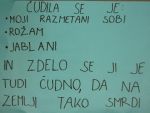 ČUDILA SE JE:
• MOJI RAZMETANI SOBI
• ROŽAM
• JABLANI
IN ZDELO SE JI JE
TUDI ČUDNO, DA NA
ZEMLJI TAKO SMRDI